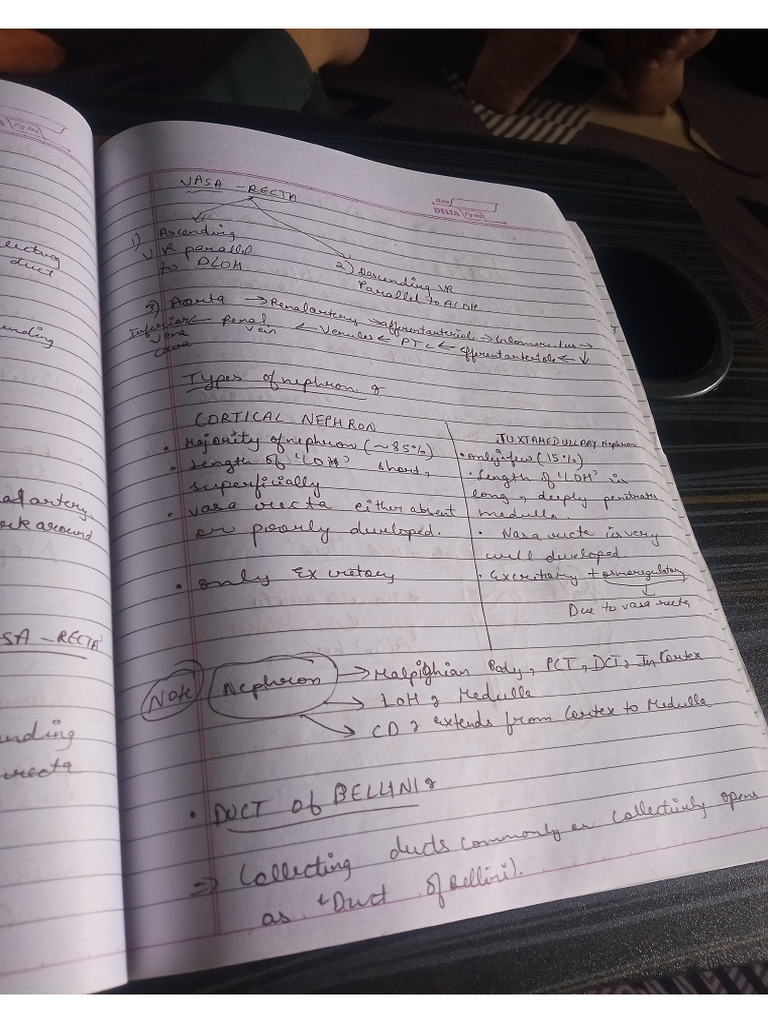 VASA - RECTA
DELTA Pg No
1) Ascending
VR parallel
to DLOH
2) Descending VR
Parallel to ALOH
3) Aorta → Renal artery → afferent arteriole → Glomerulus →
Inferior ← renal ← Venules ← PTC ← Efferent arteriole ← ↓
vena vein
cava
Types of nephron :
CORTICAL NEPHRON
• Majority of nephron (~85%)
• Length of 'LOH' short,
superficially
• Vasa recta either absent
or poorly developed.
• only Excretory
JUXTAMEDULLARY Nephron
• only a few (15%)
• Length of 'LOH' is
long, deeply penitrate
medulla.
• Vasa recta is very
well developed
• Excritory + osmoregulatory
↓
Due to vasa recta
Note Nephron → Malpighian Body, PCT, DCT : In Cortex
→ LOH : Medulla
→ CD : extends from Cortex to Medulla
• DUCT of BELLINI :
⇒ Collecting ducts commonly or collectively opens
as 'Duct of Bellini).
Pg No
duct
artery
around
SA - RECTA
recta